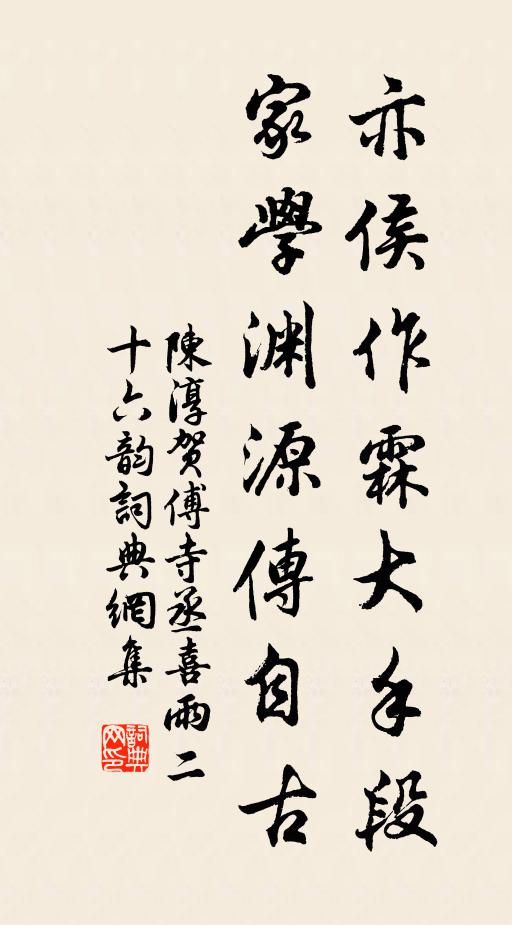 亦侯作霖大手段
家學渊源傳自古
陳淳賀傅寺丞喜雨二
十六韵詞典網集
詞典
网印